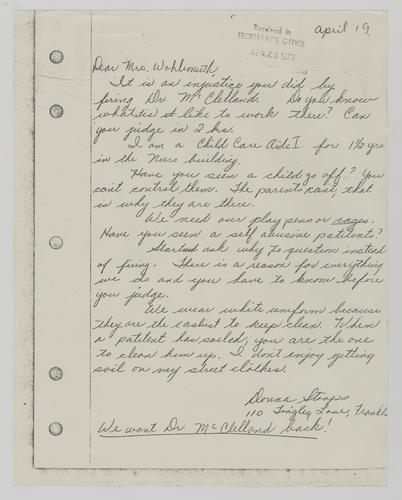 april 19
Received in
SECRETARY'S OFFICE
APR 23 1973
Dear Mrs. Wohlgemuth
It is an injustice you did by
firing Dr. McClelland. Do you know
what it is like to work there? Can
you judge in 2 hs.
I am a Child Care Aide I for 1½ yrs
in the Nurs building.
Have you seen a child go off? You
can't control them. The parents can't, that
is why they are there.
We need our play pens or cages.
Have you seen a self abusine patitents?
Start ask why to question instead
of firing. There is a reason for everything
we do and you have to know before
you judge.
We wear white uniform because
they are the eastist to keep clean. When
a patitent has soiled, you are the one
to clean him up. I don't enjoy getting
soil on my street clothes.
Donna Stoops
110 Tingley Lane, Frankli
We want Dr. McClelland back!